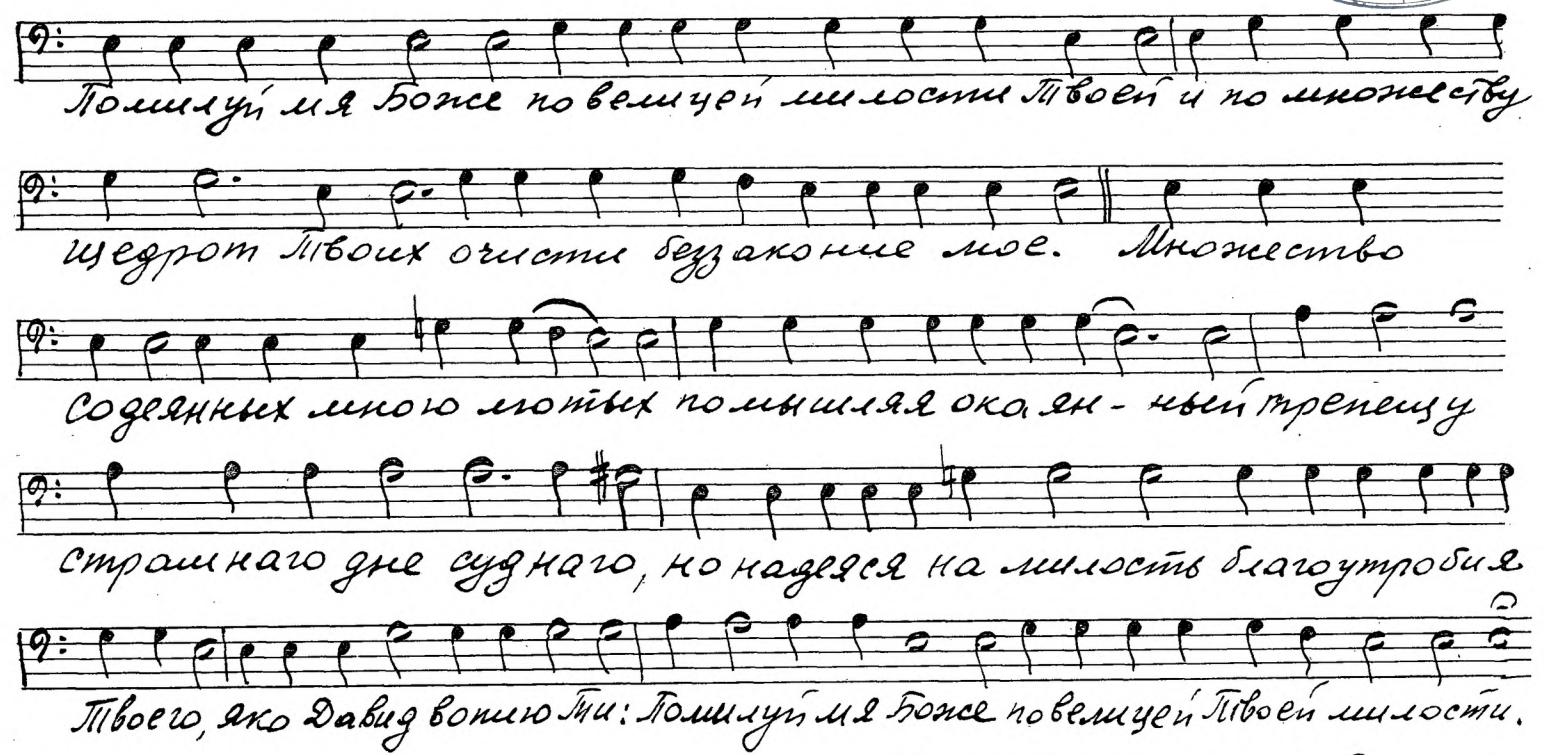 Помилуй мя Боже по велицей милости Твоей и по множеству
щедрот Твоих очисти беззаконие мое. Множество
содеянных мною лютых помышляя окаян-ный трепещу
страшнаго дне суднаго, но надеяся на милость благоутробия
Твоего, яко Давид вопию Ти: Помилуй мя Боже по велицей Твоей милости.